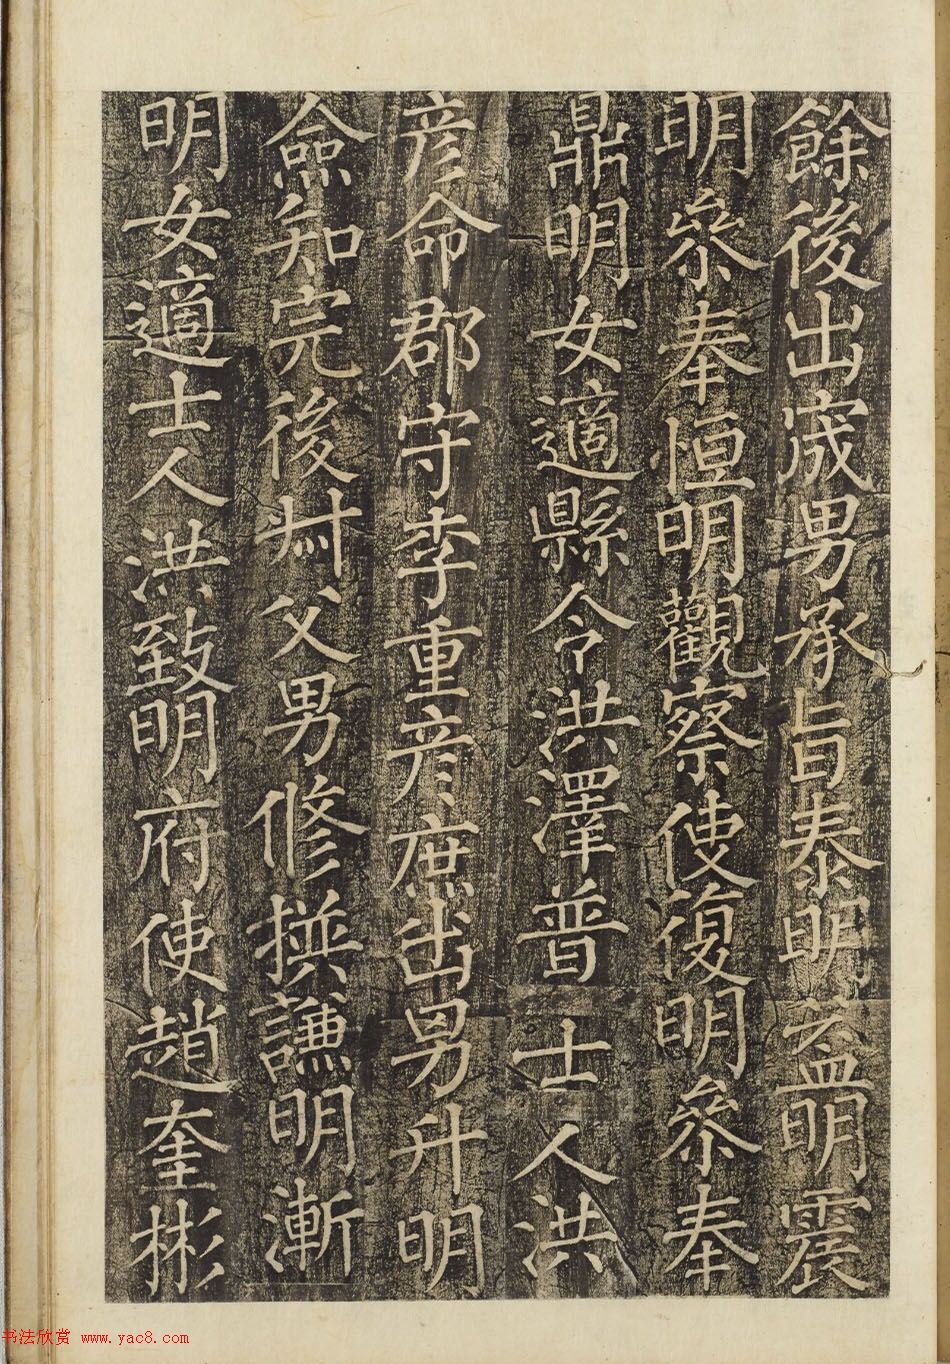 餘後出宬男承旨泰明益明震
明參奉恒明觀察使復明參奉
鼎明女適縣令洪澤普士人洪
彦命郡守李重彦庶出男升明
僉知完後叔父男修撰謙明漸
明女適士人洪致明府使趙奎彬
书法欣赏 www.yac8.com